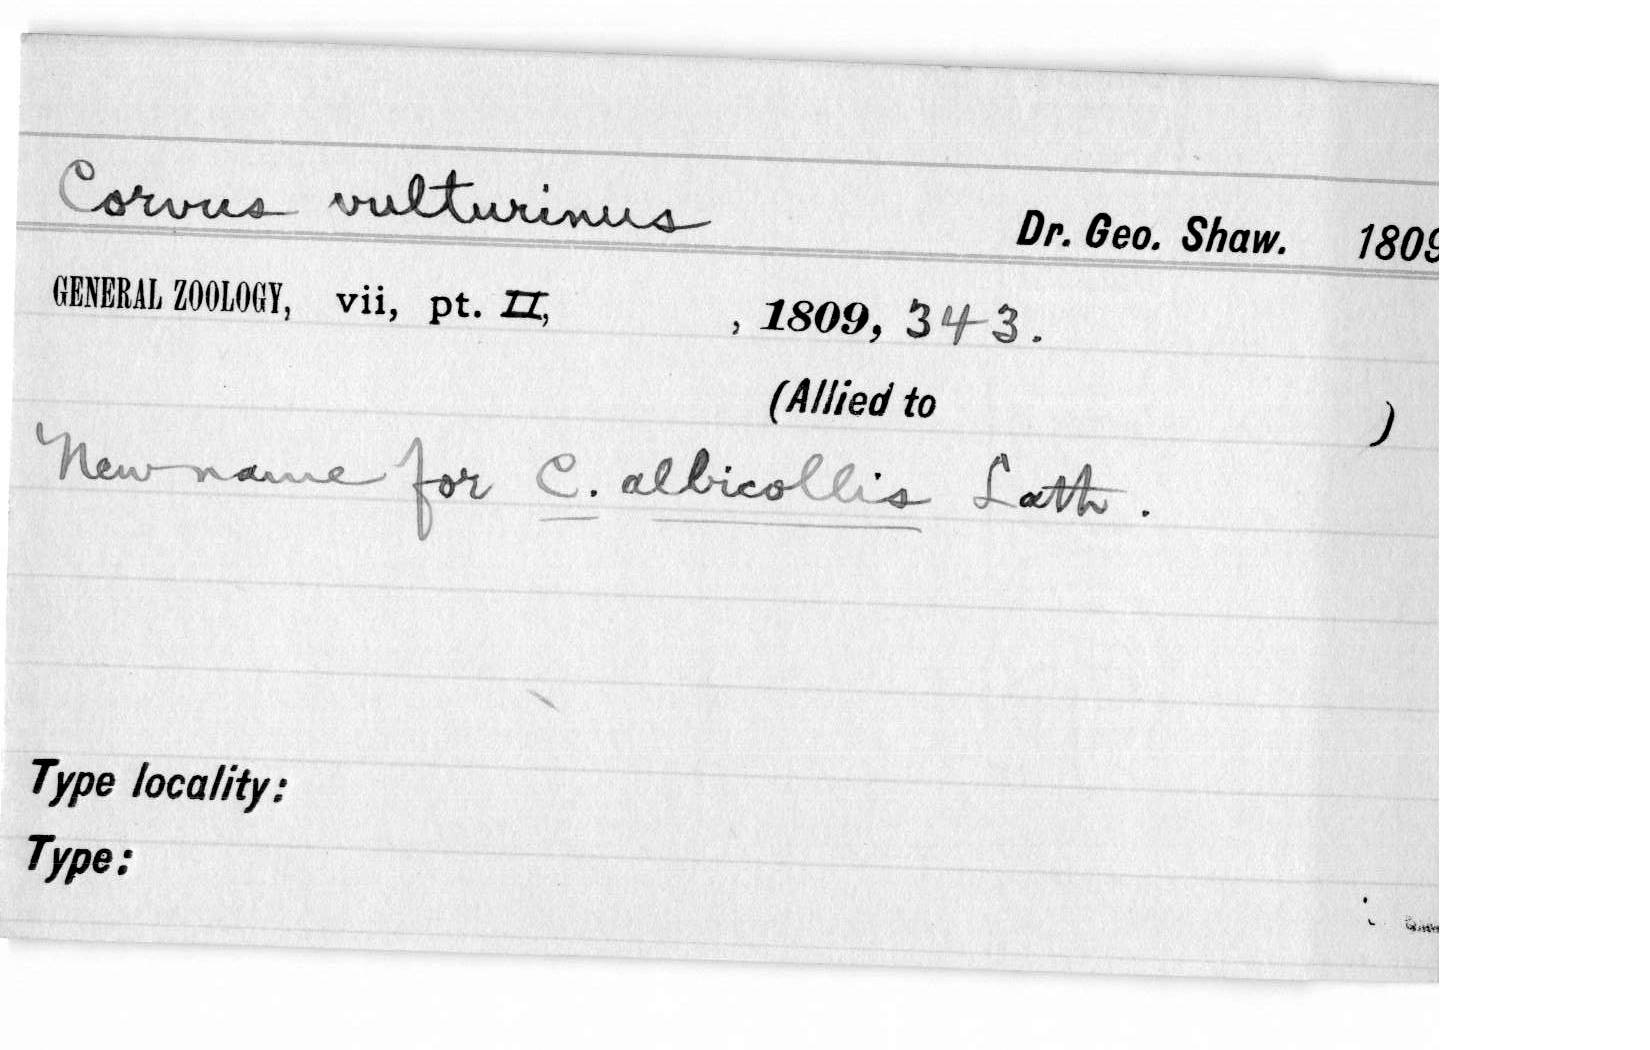 Corvus vulturinus Dr. Geo. Shaw. 1809
GENERAL ZOOLOGY, vii, pt. II, , 1809, 343.
(Allied to )
New name for C. albicollis Lath.
Type locality:
Type: